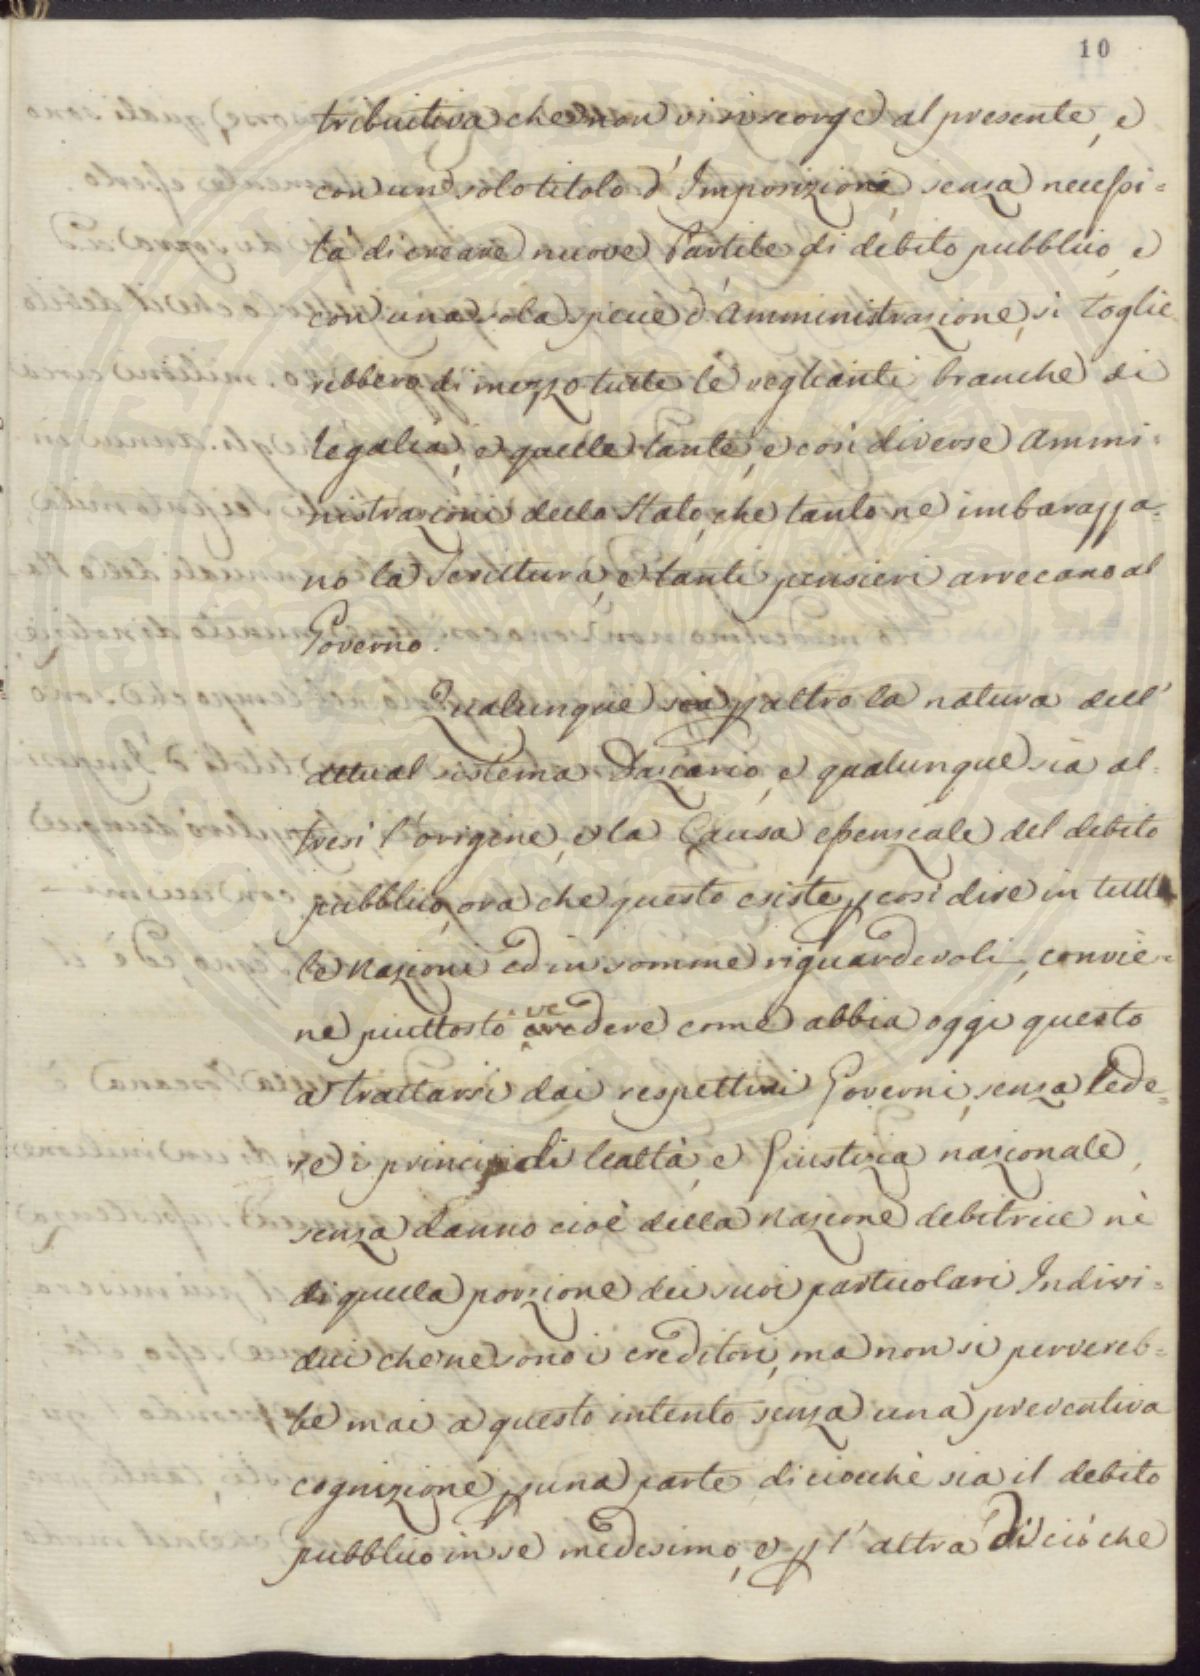 10
tributiva che non vi si scorge al presente, e
con un solo titolo d'Imposizione, senza necessi=
tà di creare nuove Partite di debito pubblico, e
con una sola specie d'Amministrazione, si toglie
rebbero di mezzo tutte le veglianti branche di
Regalia, e quelle tante, e così diverse Ammi=
nistrazioni dello Stato, che tanto ne imbarazza=
no la Scrittura, e tanti pensieri arrecano al
Governo.
Qualunque sia p altro la natura dell'
attual sistema Daziario, e qualunque sia al=
tresì l'origine, e la Causa essenziale del debito
pubblico, ora che questo esiste p così dire in tutte
le Nazioni ed in somme riguardevoli, convie=
ne piuttosto vedere come abbia oggi questo
a trattarsi dai respettivi Governi, senza lede=
re i principj di lealtà, e Giustizia nazionale,
senza danno cioè della Nazione debitrice nè
di quella porzione dei suoi particolari Indivi=
dui che ne sono i creditori, ma non si perverreb=
be mai a questo intento senza una preventiva
cognizione p una parte di ciocchè sia il debito
pubblico in se medesimo, e p l'altra di ciò che